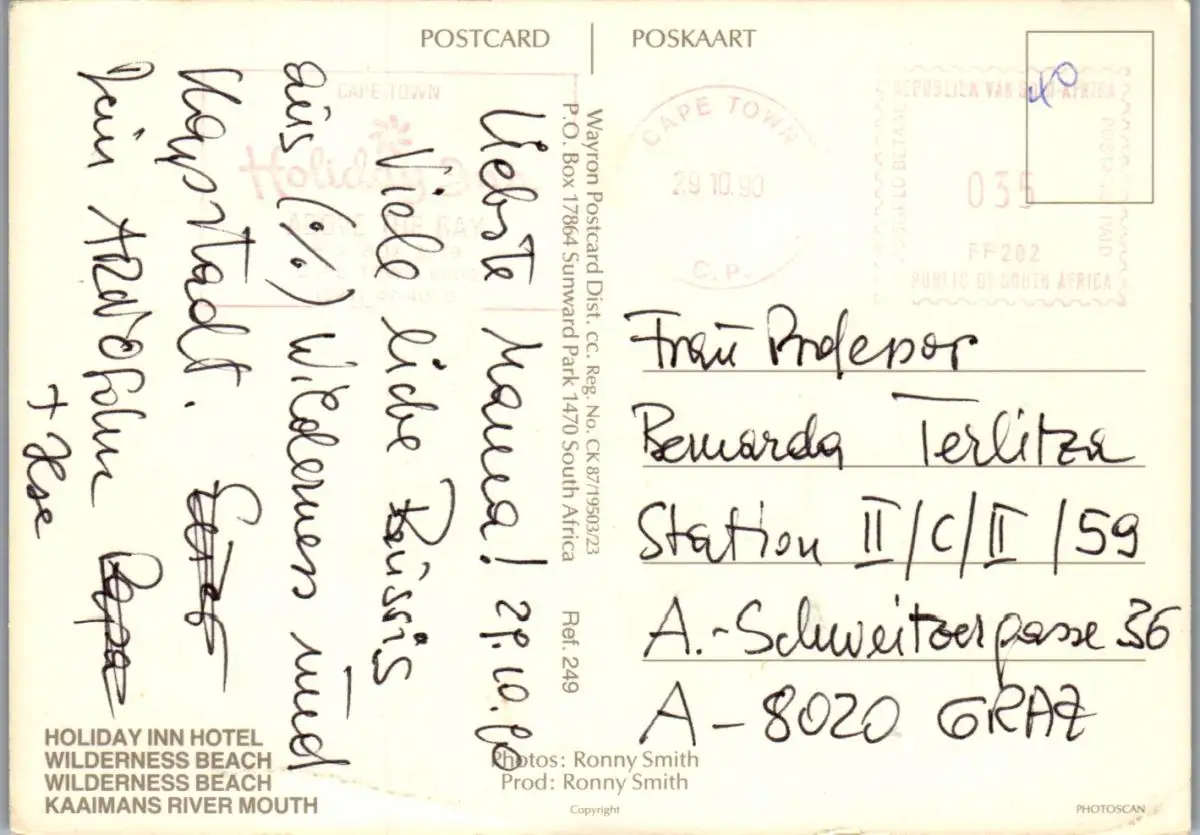 POSTCARD
POSKAART
CAPE TOWN
Holiday Inn
ABOVE THE BAY
CAPE TOWN
29 10.90
C.P.
REPUBLIEK VAN SUID-AFRIKA
035
FF202
REPUBLIC OF SOUTH AFRICA
Liebste Mama! 29.10.90
Viele liebe Bussis
aus (%) Wilderness und
Kapstadt.
Dein
Papa
+ Ilse
Wayron Postcard Dist. cc. Reg. No. CK 87/19503/23
P.O. Box 17864 Sunward Park 1470 South Africa Ref. 249
Frau Professor
Bernarda Terlitza
Station II/C/II/59
A.-Schweitzergasse 36
A-8020 GRAZ
HOLIDAY INN HOTEL
WILDERNESS BEACH
WILDERNESS BEACH
KAAIMANS RIVER MOUTH
Photos: Ronny Smith
Prod: Ronny Smith
Copyright
PHOTOSCAN